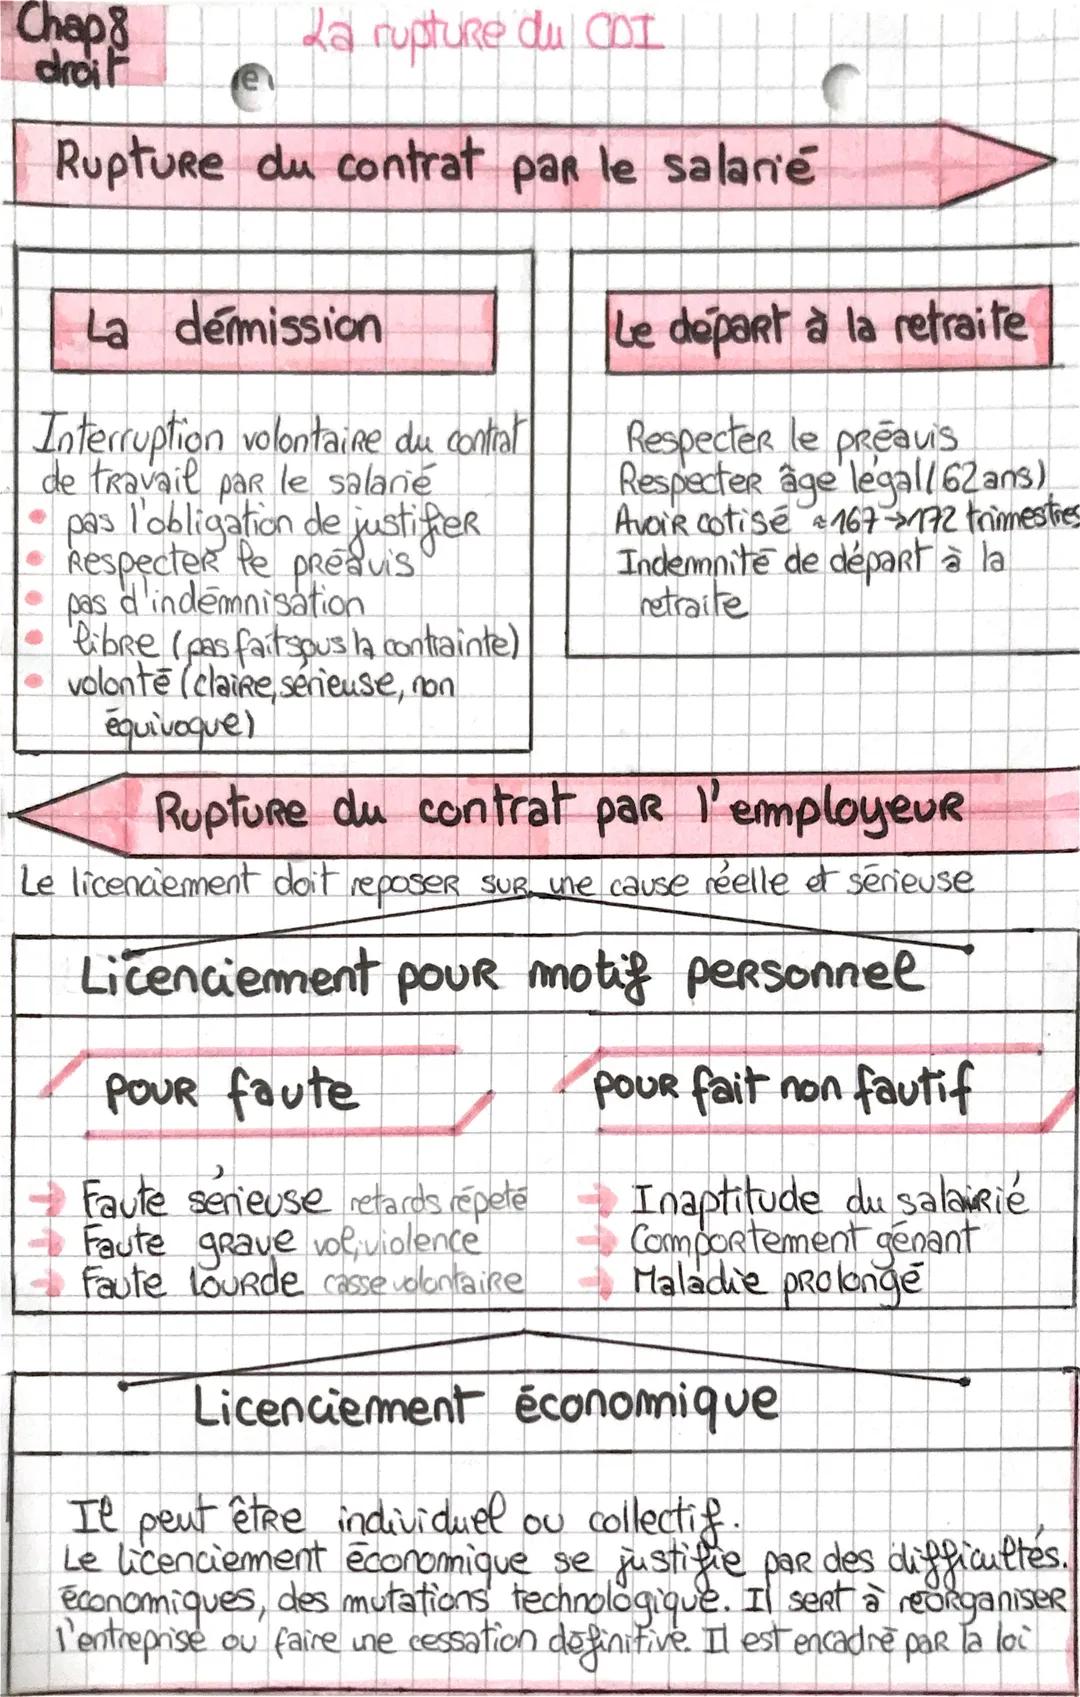 Chap 8
droit
La rupture du CDI
Rupture du contrat par le salarié
La démission
Interruption volontaire du contrat
de travail par le salarié
pas l'obligation de justifier
Respecter le préavis
pas d'indémnisation
libre (pas fait sous la contrainte)
volonté (claire, sérieuse, non
équivoque)
Le départ à la retraite
Respecter le préavis
Respecter âge légal (62 ans)
Avoir cotisé ≈ 167 → 172 trimestres
Indemnité de départ à la
retraite
Rupture du contrat par l'employeur
Le licenciement doit reposer sur une cause réelle et sérieuse
Licenciement pour motif personnel
pour faute
→ Faute sérieuse retards répeté
→ Faute grave vol, violence
→ Faute lourde casse volontaire
pour fait non fautif
→ Inaptitude du salairié
→ Comportement gênant
→ Maladie prolongé
Licenciement économique
Il peut être individuel ou collectif.
Le licenciement économique se justifie par des difficultés.
économiques, des mutations technologique. Il sert à réorganiser
l'entreprise ou faire une cessation définitive. Il est encadré par la loi